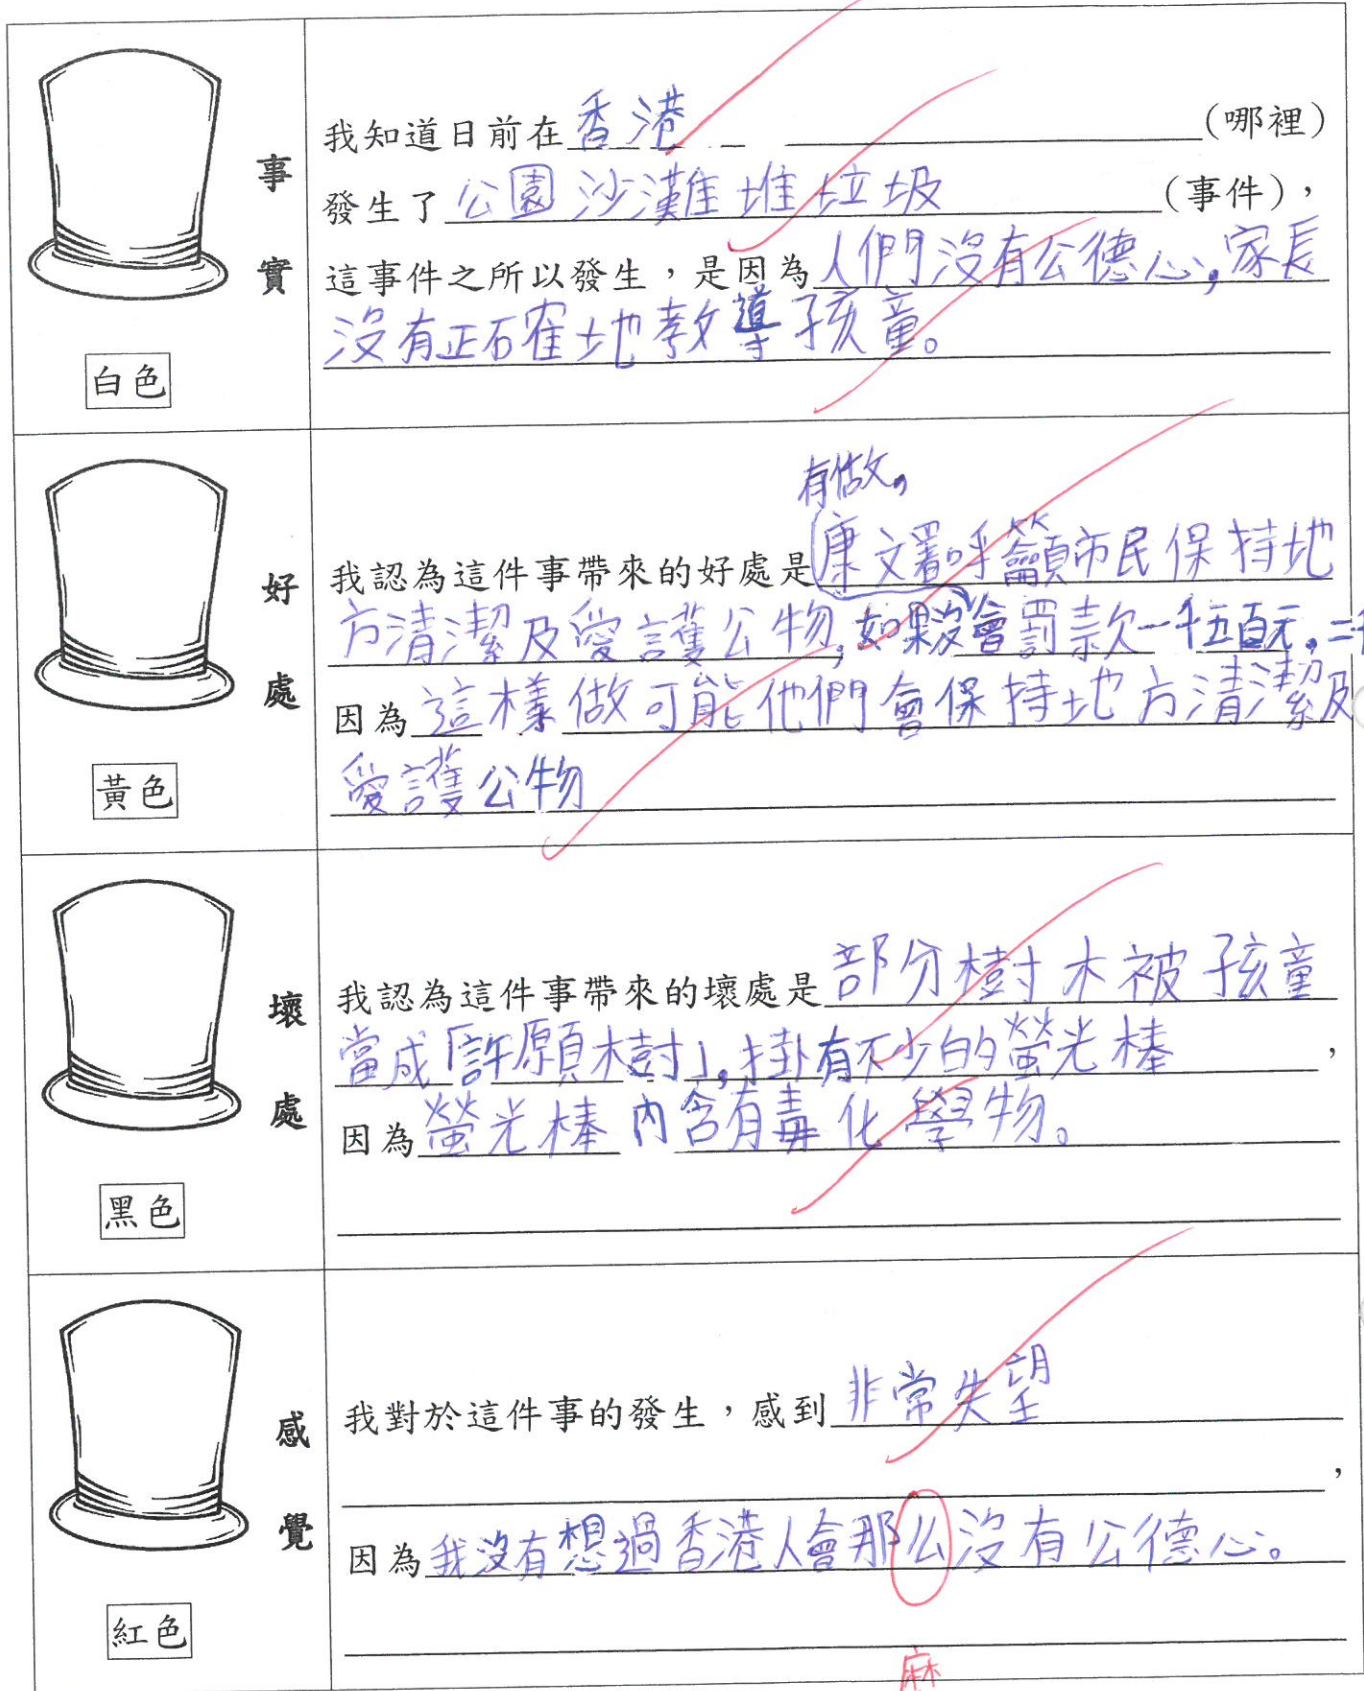 事實
白色
我知道日前在香港(哪裡)
發生了公園沙灘堆垃圾(事件),
這事件之所以發生,是因為人們沒有公德心,家長
沒有正確地教導孩童。
好處
黃色
有做,
我認為這件事帶來的好處是康文署呼籲市民保持地
方清潔及愛護公物,如果沒會罰款一千五百元。二
因為這樣做可能他們會保持地方清潔及
愛護公物
壞處
黑色
我認為這件事帶來的壞處是部分樹木被孩童
當成「許願樹」,掛有不少的螢光棒,
因為螢光棒內含有毒化學物。
感覺
紅色
我對於這件事的發生,感到非常失望
,
因為我沒有想過香港人會那么沒有公德心。
麻